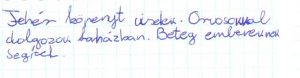 Fehér köpenyt viselek. Orvosokkal
dolgozom kórházban. Beteg embereknek
segítek.